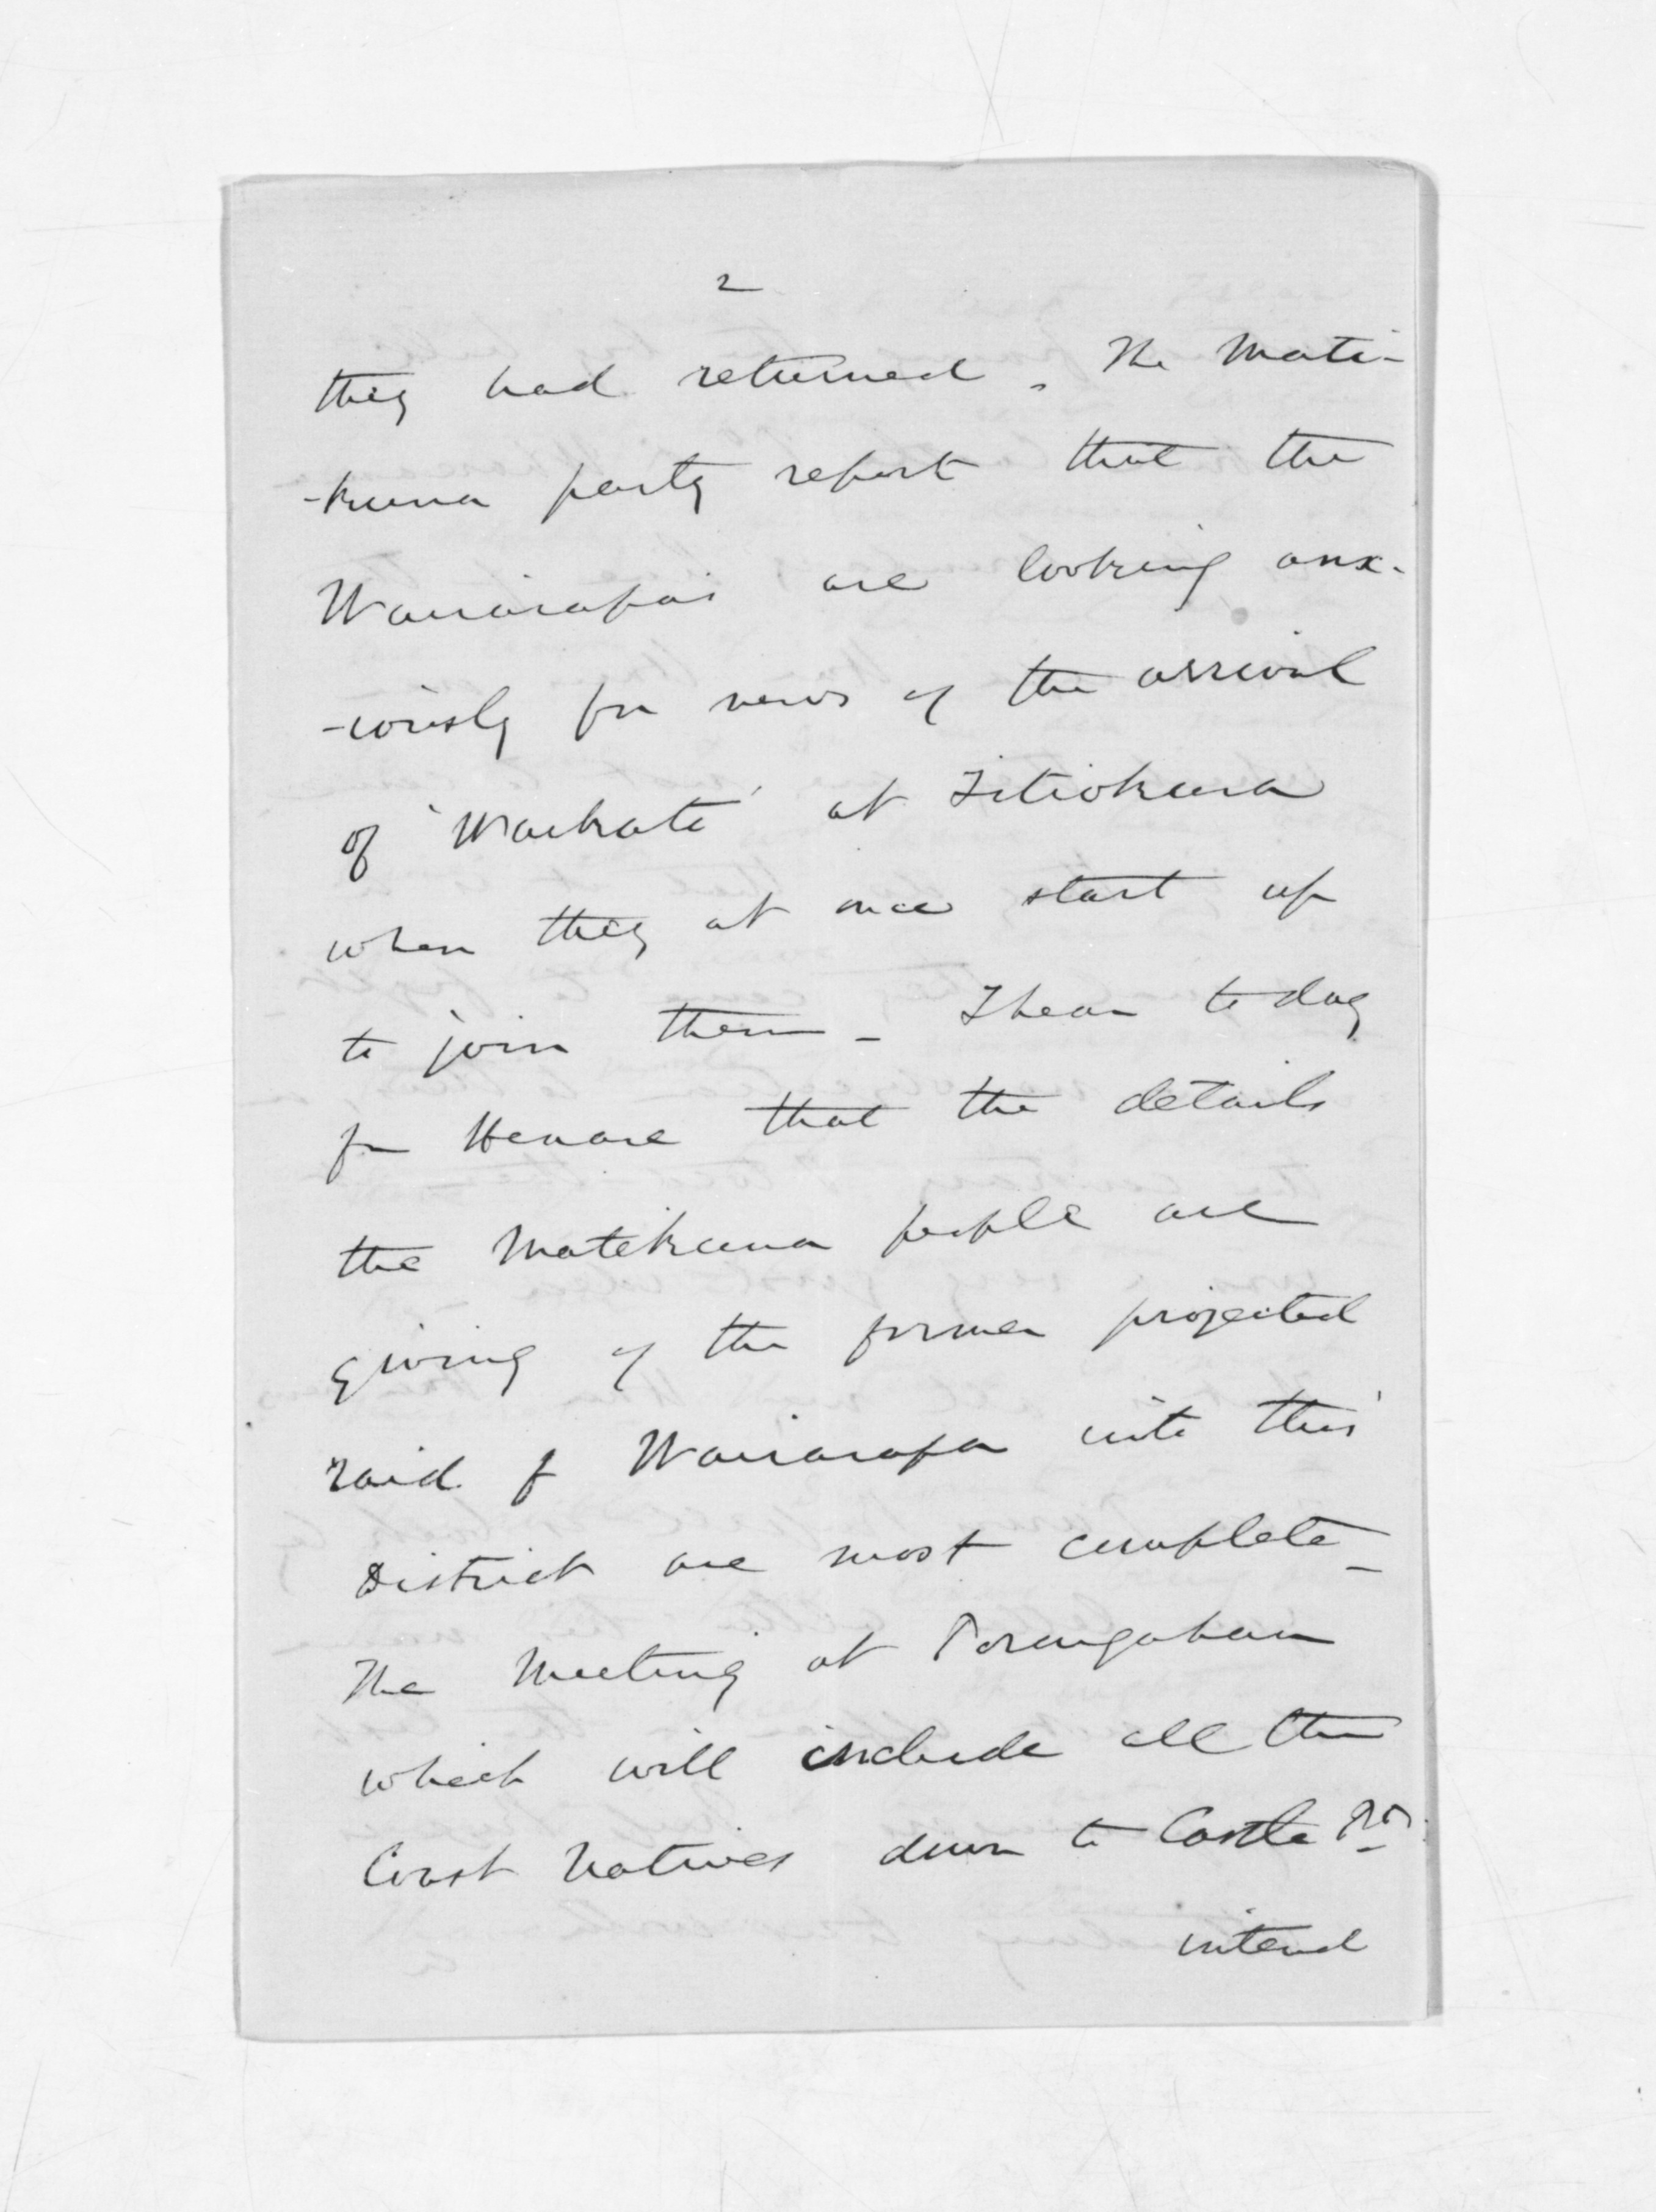 2
they had returned. The Mati-
-kuna party report that the
Wairarapas are looking anx-
-iously for news of the arrival
of 'Waikato' at Titiokura
when they at once start up
to join them - I hear today
fm Henare that the details
the Matekuna people are
giving of the former projected
raid f Wairarapa into this
District are most complete -
The Meeting at Porangahau
which will include all the
Coast Natives down to Castle Pt
intend